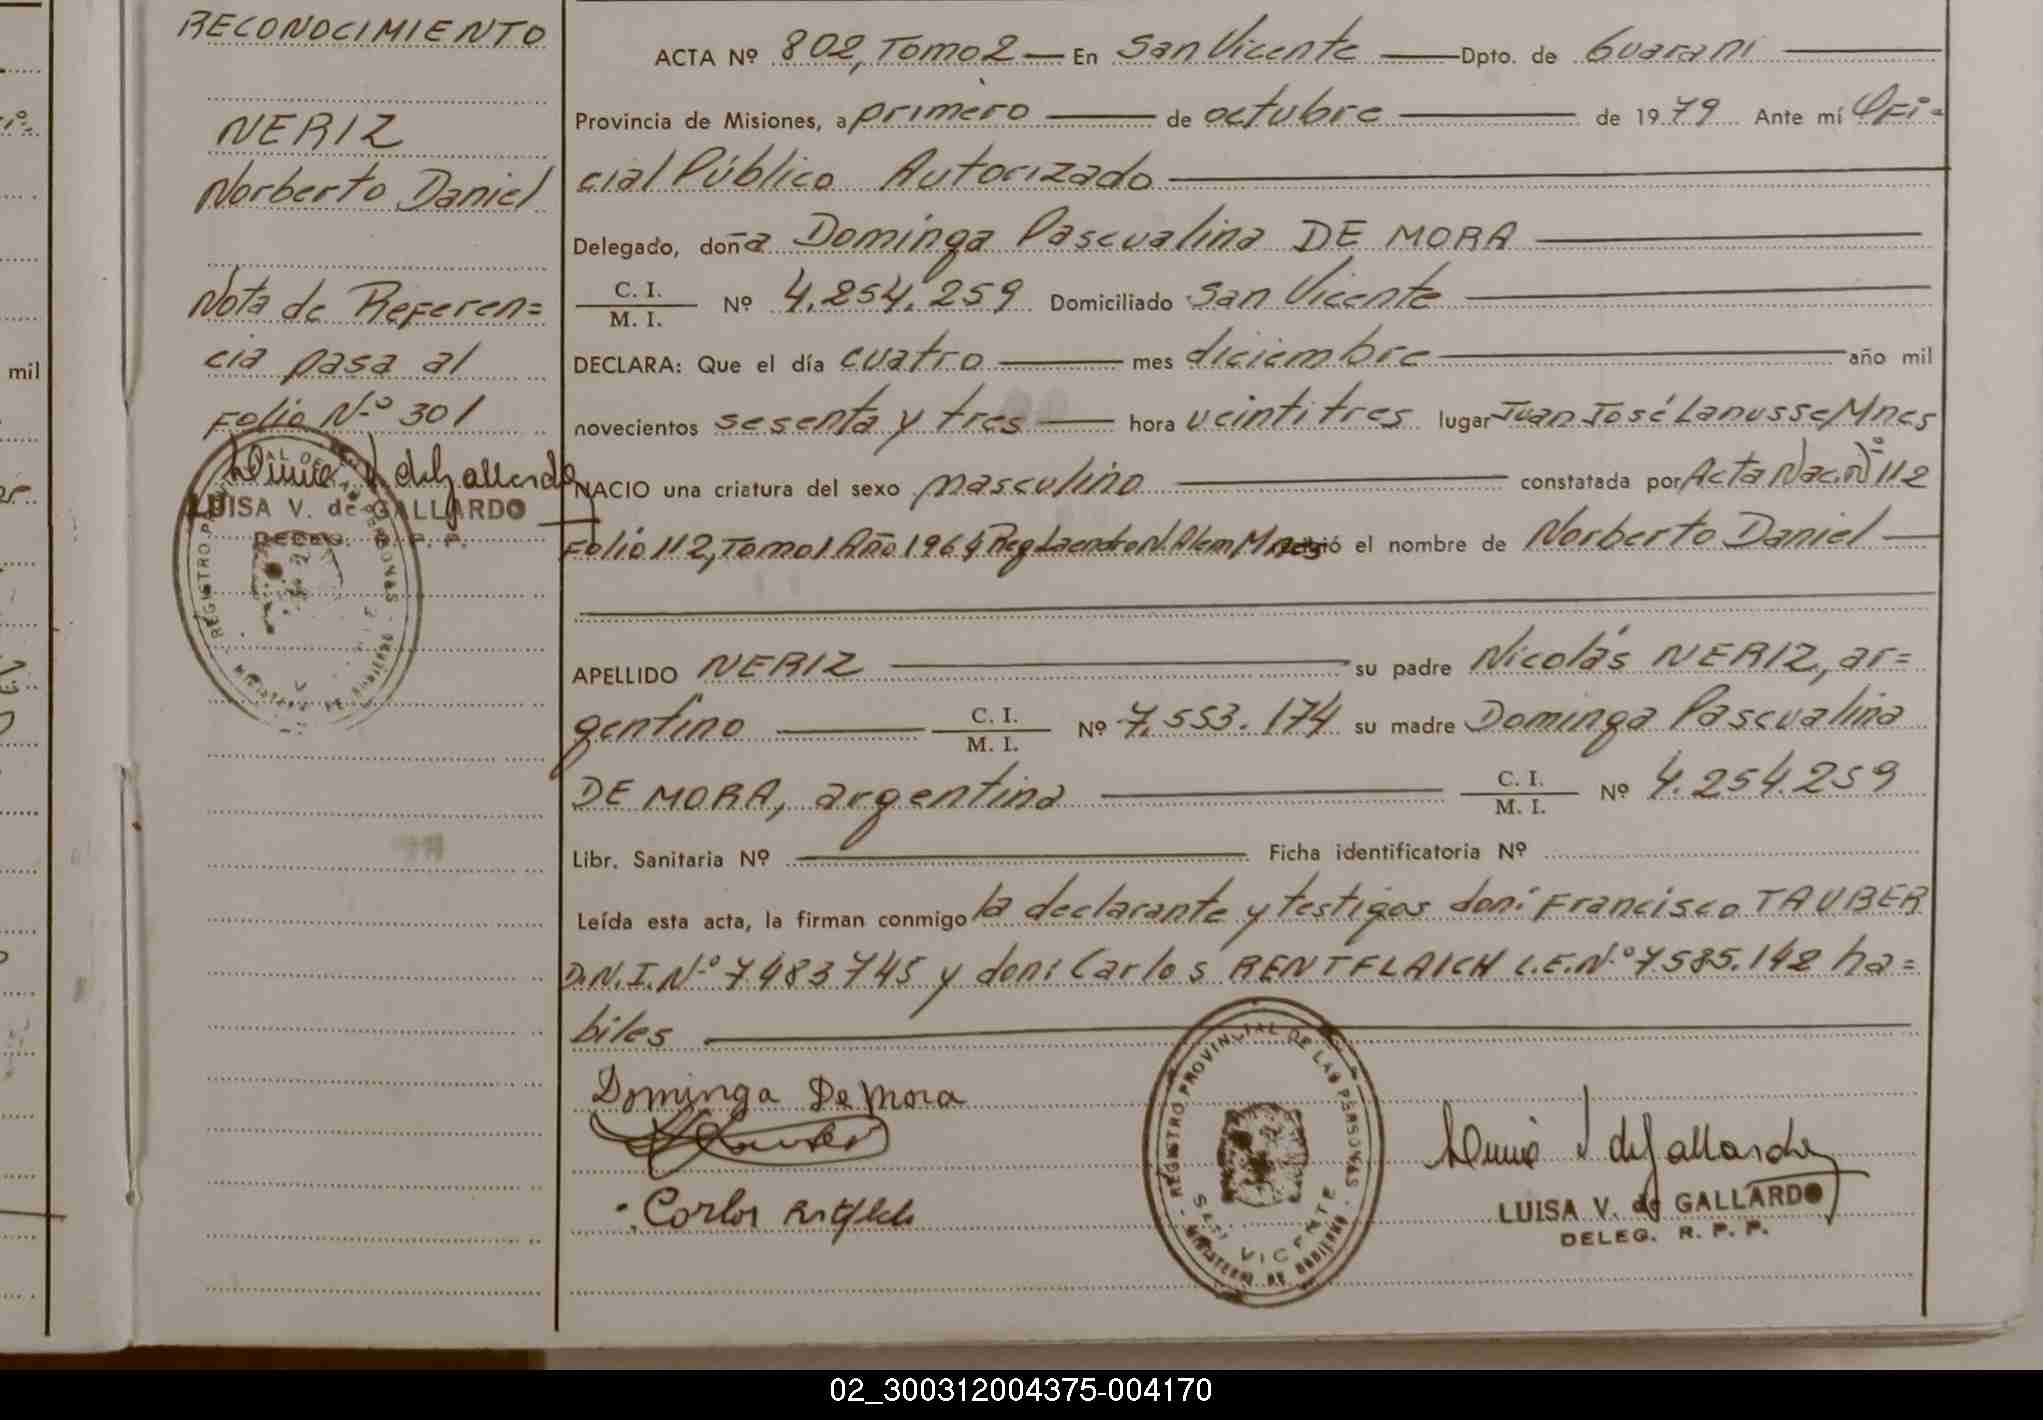 RECONOCIMIENTO
NERIZ
Norberto Daniel
Nota de Referen=
cia pasa al
Folio N.º 301
LUISA V. de GALLARDO
DELEG. R. P. P.
mil
ACTA Nº 802, Tomo 2 — En San Vicente — Dpto. de Guarani
Provincia de Misiones, a primero — de octubre — de 1979 Ante mí Ofi=
cial Público Autorizado
Delegado, doña Dominga Pascualina DE MORA
C. I. / M. I. Nº 4.254.259 Domiciliado San Vicente
DECLARA: Que el día cuatro — mes diciembre — año mil
novecientos sesenta y tres — hora veintitres lugar Juan José Lanusse, Mnes
NACIO una criatura del sexo masculino — constatada por Acta Nac. Nº 112
Folio 112, Tomo 1 Año 1964 Reg. Leandro N. Alem, Mnes recibió el nombre de Norberto Daniel —
APELLIDO NERIZ — su padre Nicolás NERIZ, ar=
gentino — C. I. / M. I. Nº 7.553.174 su madre Dominga Pascualina
DE MORA, argentina — C. I. / M. I. Nº 4.254.259
Libr. Sanitaria Nº — Ficha identificatoria Nº
Leída esta acta, la firman conmigo la declarante y testigos don: Francisco TAUBER
D.N.I. N.º 7.483.745 y don: Carlos RENTFLAICH L.E. N.º 7.585.142 ha=
biles
Dominga De Mora
Carlos
REGISTRO PROVINCIAL DE LAS PERSONAS
SAN VICENTE
MINISTERIO DE GOBIERNO
LUISA V. de GALLARDO
DELEG. R. P. P.
02_300312004375-004170